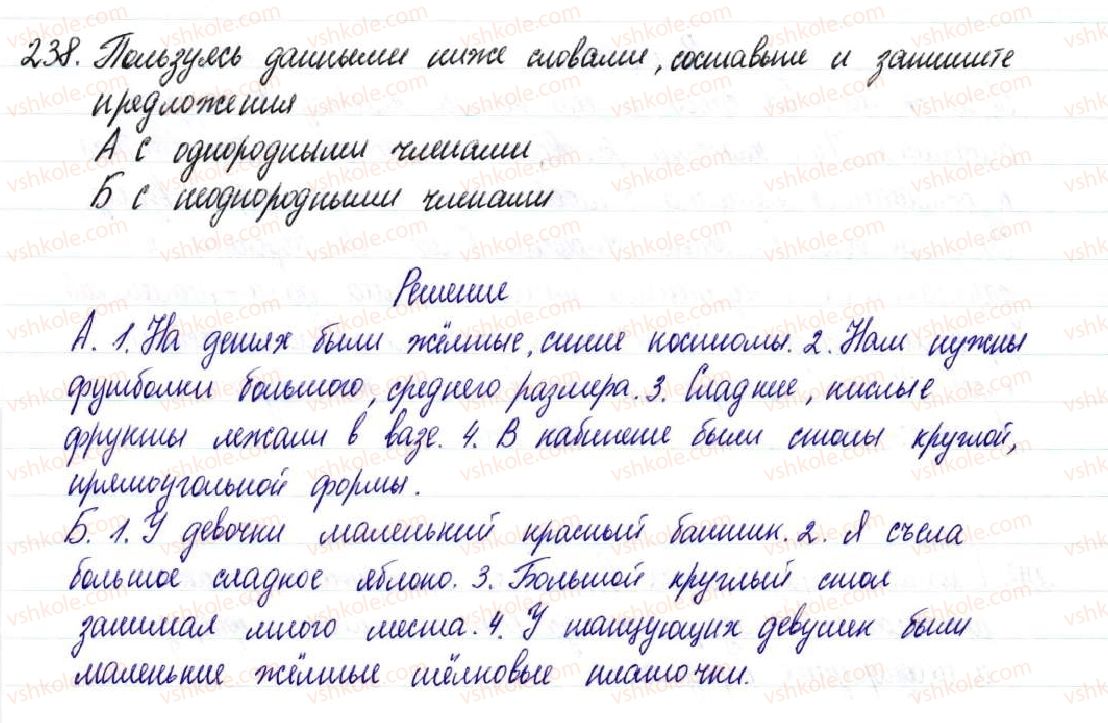 238. Пользуясь данными ниже словами, составьте и запишите
предложения
А с однородными членами
Б с неоднородными членами
Решение
А. 1. На детях были жёлтые, синие костюмы. 2. Нам нужны
футболки большого, среднего размера. 3. Сладкие, кислые
фрукты лежали в вазе. 4. В кабинете были столы круглой,
прямоугольной формы.
Б. 1. У девочки маленький красный бантик. 2. Я съела
большое сладкое яблоко. 3. Большой круглый стол
занимал много места. 4. У танцующих девушек были
маленькие жёлтые шёлковые платочки.